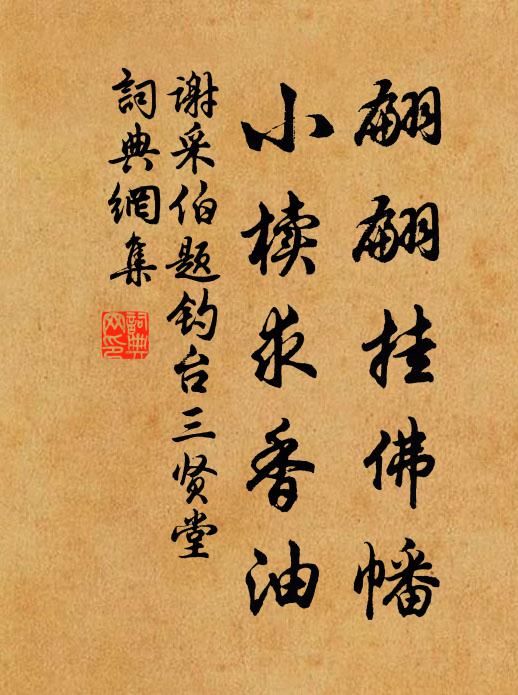 翩翩挂佛幡
小椟求香油
谢采伯题钓台三贤堂
詞典網集
詞典
网印